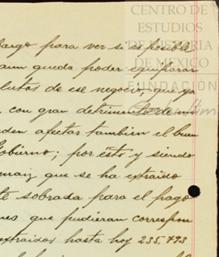 CENTRO DE
ESTUDIOS
DE HISTORIA
DE MEXICO
FUNDACIÓN
largo para ver si es posible
aun queda poder
de ese negocio que ya
con gran detrimento de
afectar tambien el buen
Gobierno; por ésto y siendo
maiz que se ha extraido
sobrada para el pago
que pudieran correspon
extraidos hasta hoy 235.793